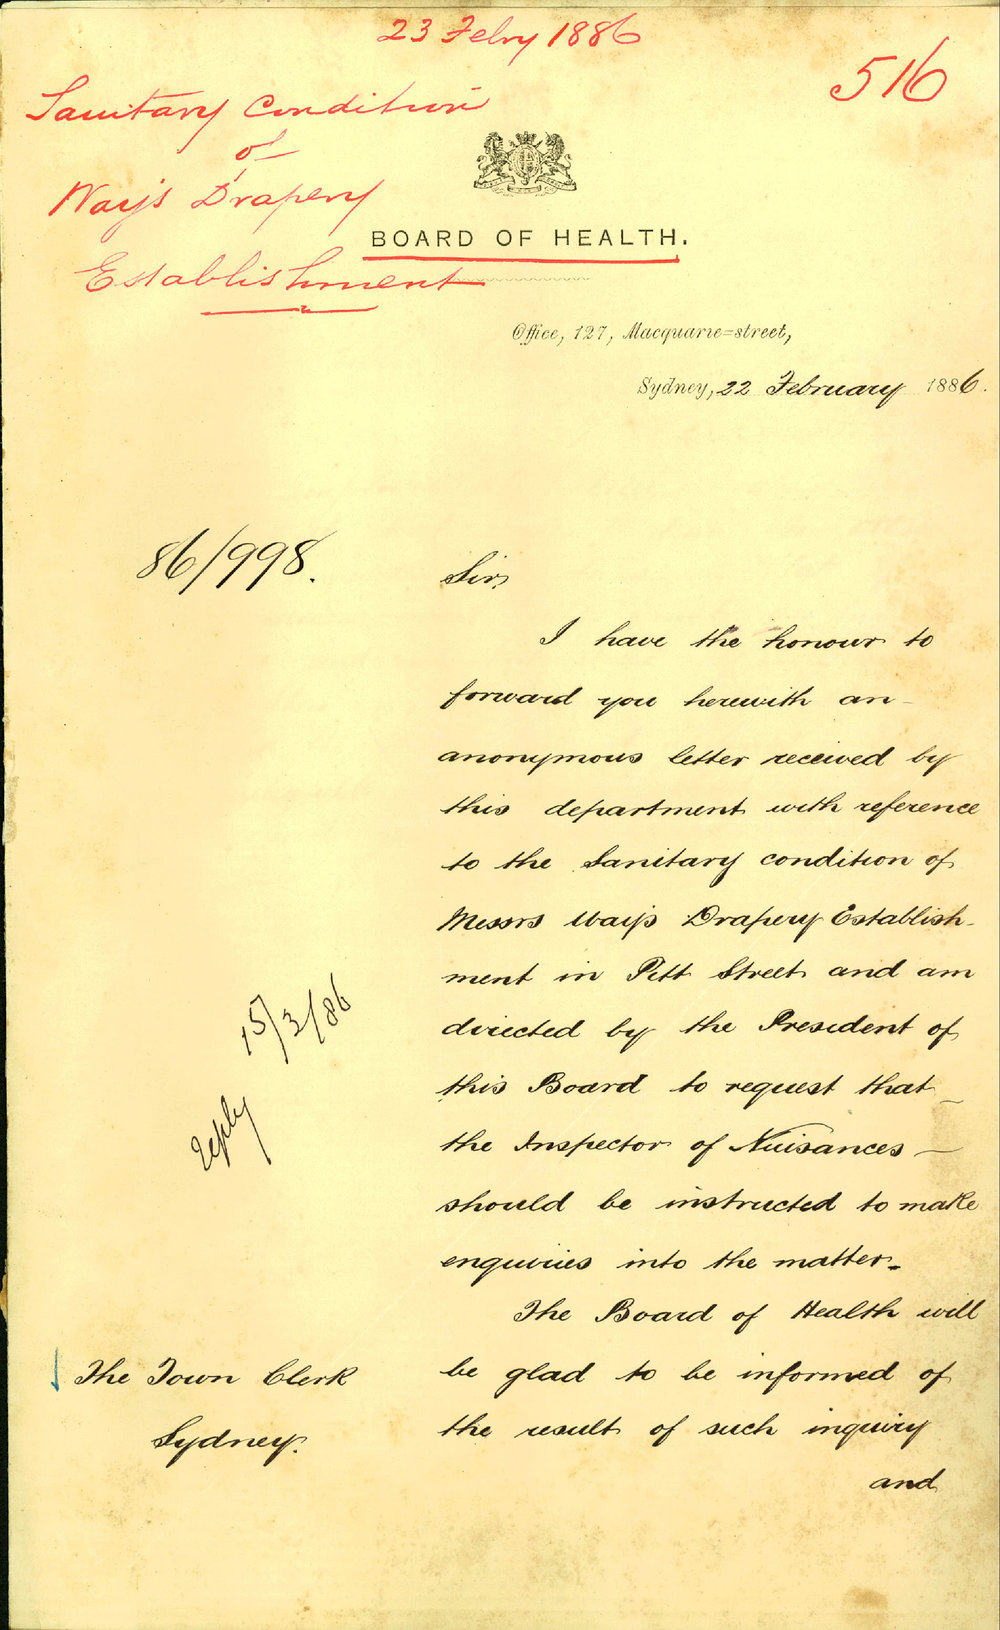 23 Febry 1886
516
Sanitary Condition
of
Way's Drapery
Establishment
BOARD OF HEALTH.
Office, 127, Macquarie=street,
Sydney, 22 February 1886.
86/998.
Sir,
I have the honour to
forward you herewith an
anonymous letter received by
this department with reference
to the Sanitary condition of
Messrs Way's Drapery Establish-
ment in Pitt Street and am
directed by the President of
this Board to request that
the Inspector of Nuisances
should be instructed to make
enquiries into the matter.
The Board of Health will
be glad to be informed of
the result of such inquiry
and
reply 15/3/86
The Town Clerk
Sydney.